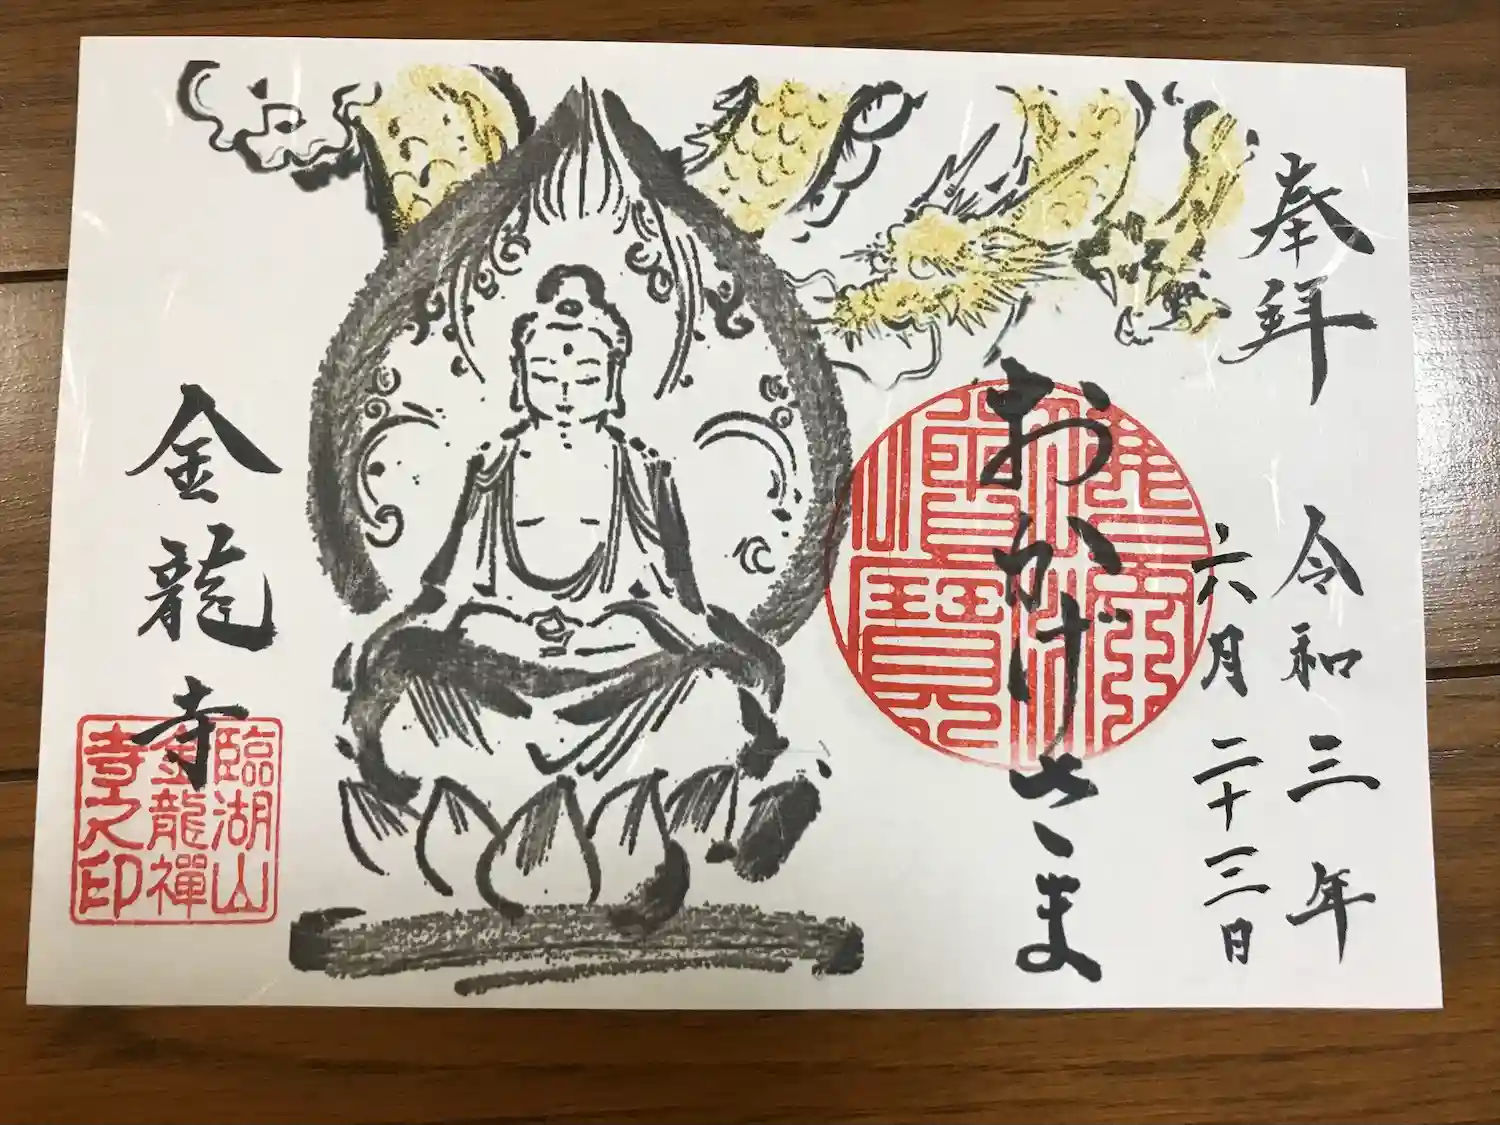 奉拝
令和三年
六月二十三日
おかげさま
金龍寺
臨湖山
金龍禪
寺之印